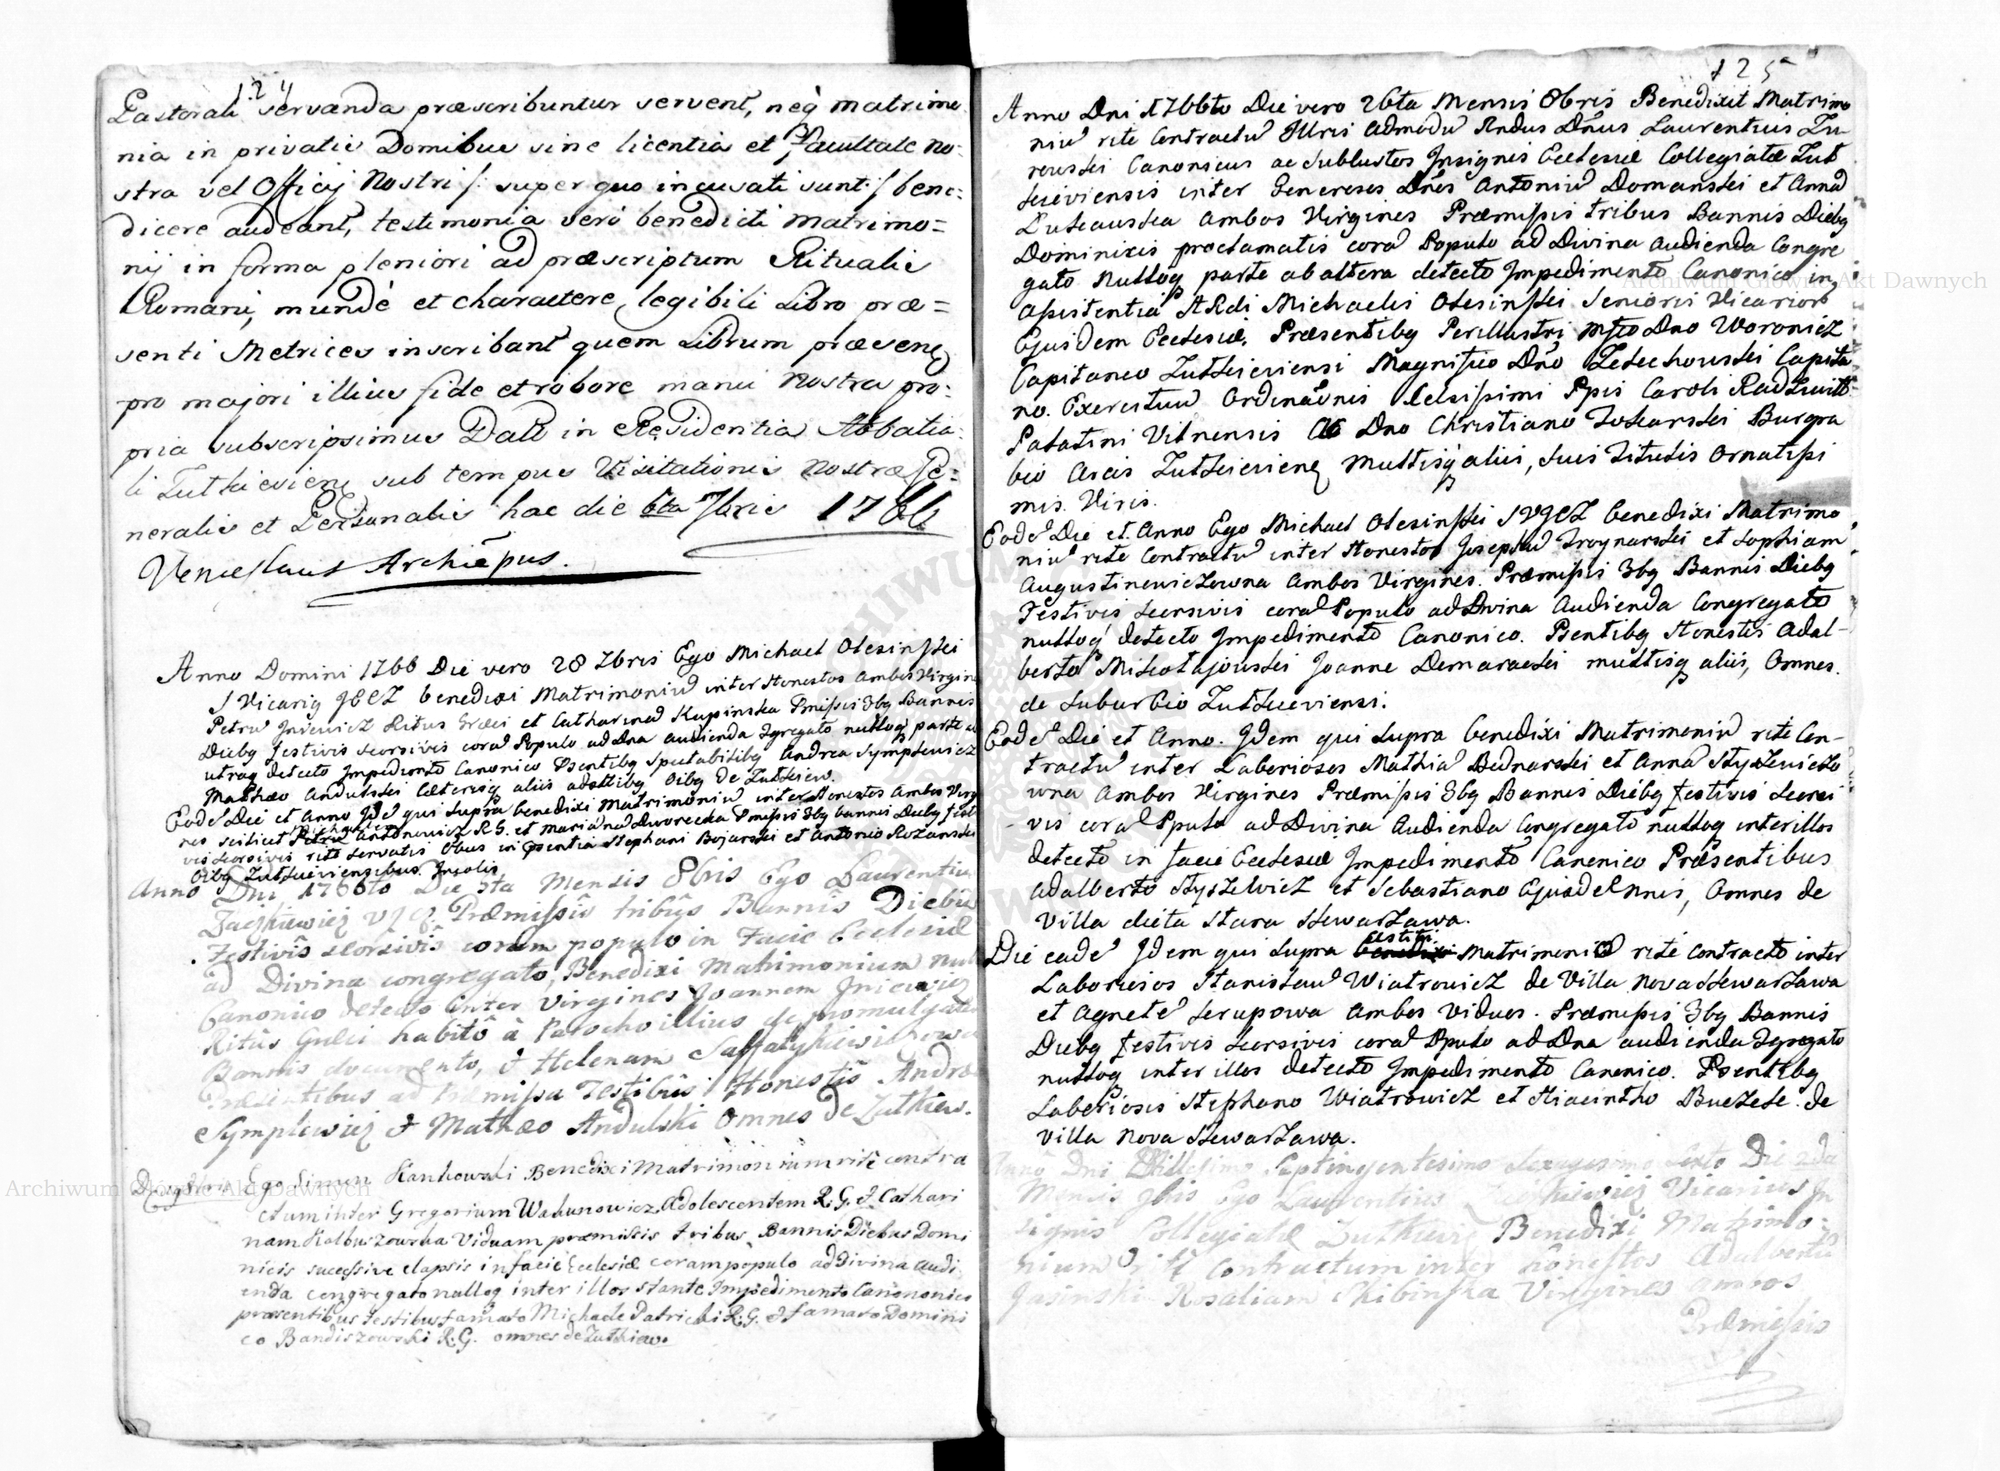 124
Pastorali servanda præscribuntur servent, neq matrimo
nia in privatis Domibus sine licentia et Facultate no:
stra vel Officij Nostri /: super quo incusati sunt :/ bene:
dicere audeant, testimonia verò benedicti Matrimo=
nij in forma pleniori ad præscriptum Ritualis
Romani, mundè et charactere legibili Libro præ=
senti Metrices inscribant quem Librum præsene
pro majori illius fide et robore manu Nostra pro:
pria subscripsimus Datt in Residentia Abbatia:
li Zulkievien sub tempus Visitationis Nostræ Ge:
neralis et Personalis hac die 6ta 7bris 1766
Venceslaus Archiepus.
Anno Domini 1766 Die vero 28 7bris Ego Michael Olesinskei
S Vicariq benedixi Matrimoniu inter Honestos Ambos Virgine
Petru Ritus Græci et Catharina Kupinska Pmissis 3bq Bannis
Diebq festivis seorsivis cora Populo ad Dna audienda gregato nulloq parte ab
utraq detecto Impedimto Canonico Psentibq Spectabilibq Andrea Symplewicz
Mathæo Andulskei Cæterisq aliis Oibq De Zulkiew.
Eode Die et Anno Ide qui supra benedixi Matrimoniu inter Honestos Ambos Virgi
nes scilicet Michae Antonowicz R.G. et Mariana Dworecka Pmissis 3bq bannis Diebq festi
vis seorsivis rite servatis in psentia Stephani Bojarskei et Antonio Rozanskei
Oibq Zulkieviensibus.
Anno Dni 1766to Die 5ta Mensis 8bris Ego Laurentius
Præmissis tribus Bannis Diebus
Festivis seorsivis coram populo in Facie Ecclesiæ
ad Divina congregato, Benedixi Matrimonium nul
Canonico detecto inter Virgines Joannem
Ritûs Græci habitô â Parocho illius de promulgatis
Bannis documento, & Helenam
Præsentibus ad præmissa Testibus Honestis Andrea
Symplewicz & Mathæo Andulski Omnes de Zulkiew.
Ego Simon Hankowski Benedixi Matrimonium ritè contra
ctum inter Gregorium Wahunowicz Adolescentem R.G. & Cathari
nam Kalbuszowska Viduam præmissis tribus Bannis Diebus Domi
nicis sucessive elapsis in facie Ecclesiæ coram populo ad Divina audi
enda congregato nulloq inter illos stante Impedimento Canononico
præsentibus testibus famato Michaele Patricki R.G. & famato Domini
co Bandiszowski R.G. omnes de Zulkiew.
125
Anno Dni 1766to Die vero 26ta Mensis 8bris Benedixit Matrimo
niu rite Contractu Illris admodu Rndus Dnus Laurentius Zu
rowskei Canonicus ac Subkustos Insignis Ecclesiæ Collegiatæ Zul
kieviensis inter Generosos Dnos Antoniu Domanskei et Anna
Lukawska Ambos Virgines Præmissis tribus Bannis Diebq
Dominicis proclamatis cora Populo ad Divina audienda Congre
gato nulloq parte ab altera detecto Impedimento Canonico in
assistentia ARdi Michaelis Olesinskei Senioris Vicarior
Ejusdem Ecclesiæ, Præsentibq Perillustri Mfco Dno Woronicz
Capitaneo Zulkieviensi Magnifico Dno Zelechowskei Capita
no Exercituu Ordinãonis Celsissimi Ppis Caroli Radziwill
Palatini Vilnensis Ac Dno Christiano Tokarskei Burgra
bio Arcis Zulkieviene Multisq aliis, suis Titulis Ornatissi
mis Viris.
Eode Die et Anno Ego Michael Olesinskei benedixi Matrimo
niu rite Contractu inter Honestos Josephu Troynarskei et Sophiam
Augustinewiczowna Ambos Virgines. Præmissis 3bq Bannis Diebq
Festivis seorsivis cora Populo ad Divina Audienda Congregato
nulloq detecto Impedimento Canonico. Psentibq Honestis Adal-
berto Mikolajowskei Joanne Demarackei multisq aliis, Omnes
de Suburbio Zulkieviensi.
Eode Die et Anno. Idem qui supra benedixi Matrimoniu rite Con-
tractu inter Laboriosos Mathia Bednarskei et Anna Styszewiczo
wna Ambos Virgines Præmissis 3bq Bannis Diebq festivis seorsi
vis cora Ppulo ad Divina Audienda Congregato nulloq inter illos
detecto in facie Ecclesiæ Impedimento Canonico Præsentibus
Adalberto Styszewicz et Sebastiano Ejusde Nnis, Omnes de
Villa dicta Stara Skwarzawa.
Die eade Idem qui supra benedixi Matrimonio rite contracto inter
Laboriosos Stanislau Wiatrowicz de Villa Nova Skwarzawa
et Agnete Serupowa Ambos Viduos. Præmissis 3bq Bannis
Diebq festivis seorsivis cora Ppulo ad Dna audienda gregato
nulloq inter illos detecto Impedimento Canonico. Psentibq
Laboriosis Stephano Wiatrowicz et Hiacintho Buczek de
Villa Nova Skwarzawa.
Anno Dni Millesimo Septingentesimo Sexagesimo Sexto Die 2da
Mensis 9bris Ego Laurentius Vicarius In
signis Collegiatæ Zulkiew Benedixi Matrimo-
nium ritè Contractum inter honestos Adalbertu
Gasinski Rosaliam Skibinska Virgines ambos
Præmissis
Archiwum Główne Akt Dawnych
Archiwum Główne Akt Dawnych